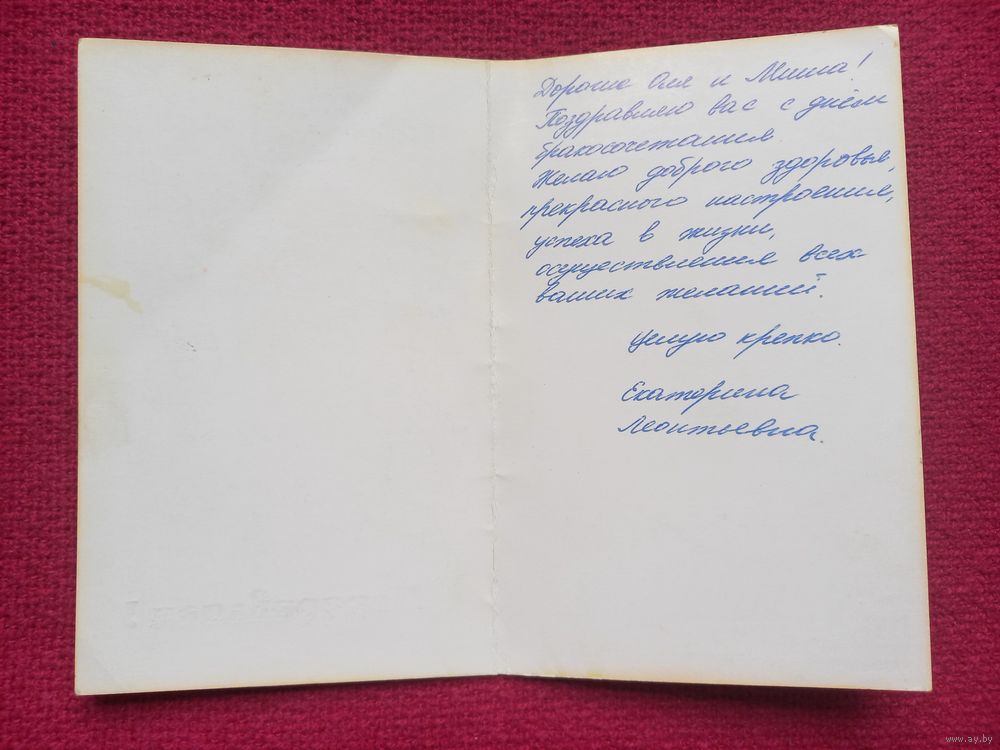 Дорогие Оля и Миша!
Поздравляю вас с днём
бракосочетания.
Желаю доброго здоровья,
прекрасного настроения,
успеха в жизни,
осуществления всех
ваших желаний.
Целую крепко.
Екатерина
Леонтьевна.
www.ay.by